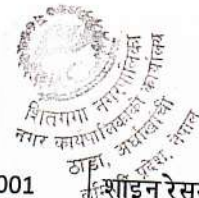 शितगंगा नगरपालिका
नगर कार्यपालिकाको कार्यालय
ठाडा, अर्घाखाँची
प्रदेश, नेपाल
001
शाइन रेसु